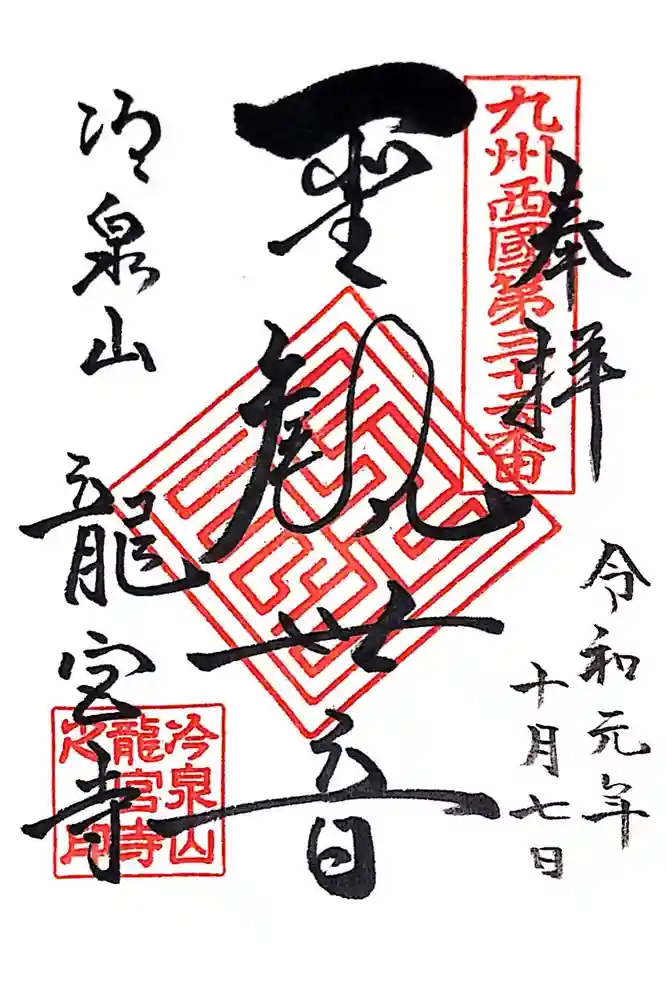 奉拝
令和元年
十月七日
九州西國第三十二番
聖観世音
冷泉山
龍宮寺
冷泉山
龍宮寺
之印